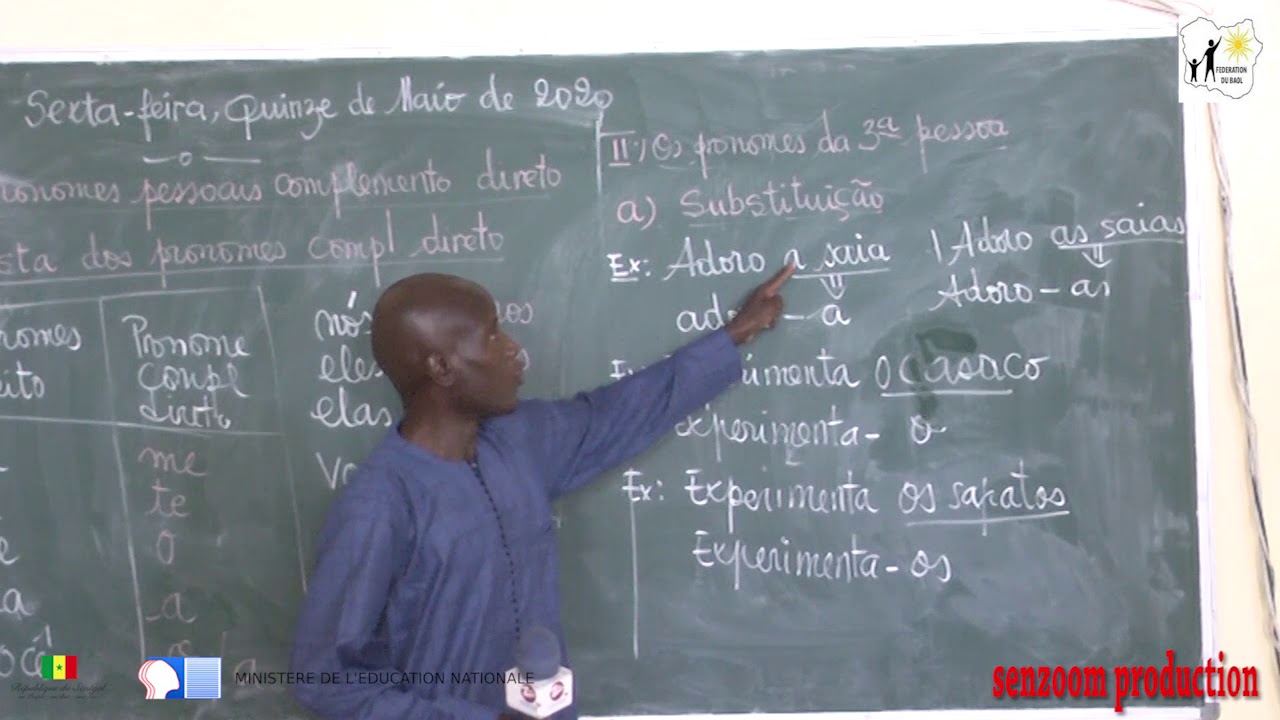 Sexta-feira, Quinze de Maio de 2020
pessoais complemento direto
dos pronomes compl direto
Pronome
compl
direto
me
te
o
a
nós
elas
II) Os pronomes da 3ª pessoa
a) Substituição
Ex: Adoro a saia
a
Adoro as saias
Adoro - as
o casaco
experimenta - o
Ex: Experimenta os sapatos
Experimenta - os
FEDERATION
DU BAOL
République du Sénégal
MINISTERE DE L'EDUCATION NATIONALE
senzoom production